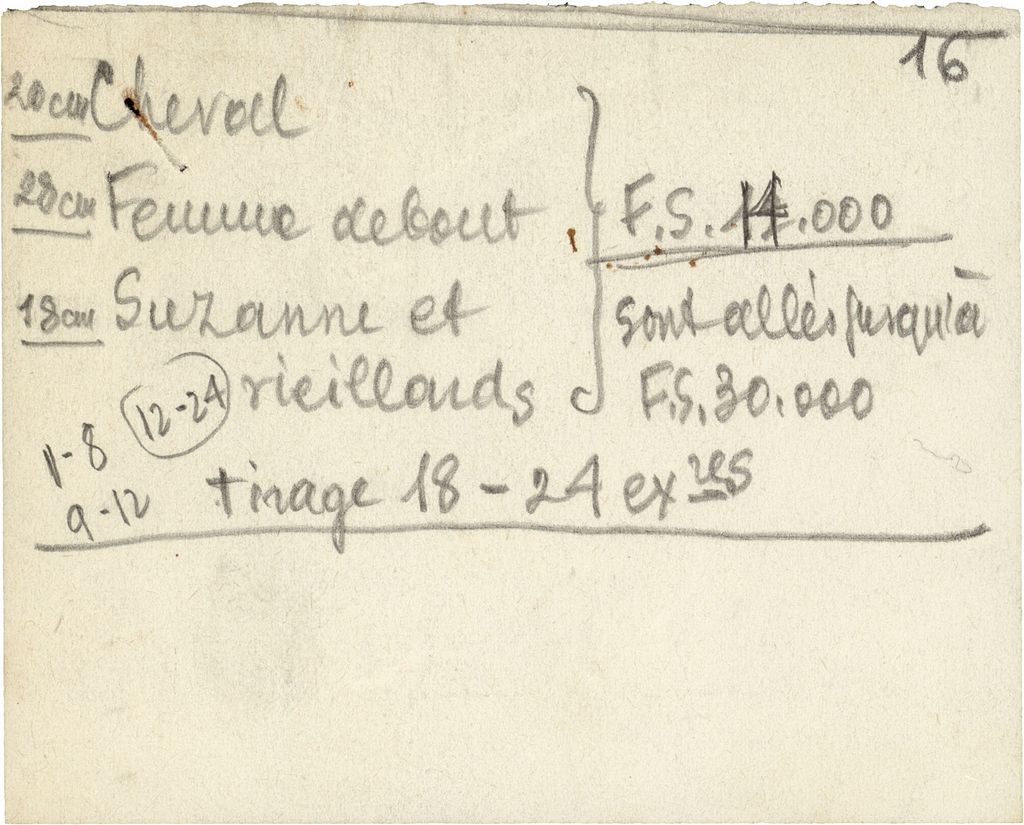 16
20cm Cheval
28cm Femme debout
18cm Suzanne et
vieillards
F.S. .000
sont allés jusqu'à
F.S. 30.000
12-24
1-8
9-12
tirage 18 - 24 exres